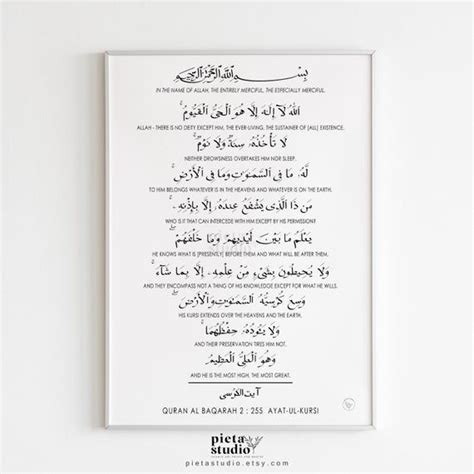 بِسْمِ اللَّهِ الرَّحْمَٰنِ الرَّحِيمِ
IN THE NAME OF ALLAH, THE ENTIRELY MERCIFUL, THE ESPECIALLY MERCIFUL.
اللَّهُ لَا إِلَٰهَ إِلَّا هُوَ الْحَيُّ الْقَيُّومُ ۚ
ALLAH - THERE IS NO DEITY EXCEPT HIM, THE EVER-LIVING, THE SUSTAINER OF [ALL] EXISTENCE.
لَا تَأْخُذُهُ سِنَةٌ وَلَا نَوْمٌ ۚ
NEITHER DROWSINESS OVERTAKES HIM NOR SLEEP.
لَهُ مَا فِي السَّمَٰوَٰتِ وَمَا فِي الْأَرْضِ ۗ
TO HIM BELONGS WHATEVER IS IN THE HEAVENS AND WHATEVER IS ON THE EARTH.
مَنْ ذَا الَّذِي يَشْفَعُ عِنْدَهُ إِلَّا بِإِذْنِهِ ۚ
WHO IS IT THAT CAN INTERCEDE WITH HIM EXCEPT BY HIS PERMISSION?
يَعْلَمُ مَا بَيْنَ أَيْدِيهِمْ وَمَا خَلْفَهُمْ ۖ
HE KNOWS WHAT IS [PRESENTLY] BEFORE THEM AND WHAT WILL BE AFTER THEM,
وَلَا يُحِيطُونَ بِشَيْءٍ مِنْ عِلْمِهِ إِلَّا بِمَا شَاءَ ۚ
AND THEY ENCOMPASS NOT A THING OF HIS KNOWLEDGE EXCEPT FOR WHAT HE WILLS.
وَسِعَ كُرْسِيُّهُ السَّمَٰوَٰتِ وَالْأَرْضَ ۖ
HIS KURSI EXTENDS OVER THE HEAVENS AND THE EARTH,
وَلَا يَئُودُهُ حِفْظُهُمَا ۚ
AND THEIR PRESERVATION TIRES HIM NOT.
وَهُوَ الْعَلِيُّ الْعَظِيمُ
AND HE IS THE MOST HIGH, THE MOST GREAT.
آيت الكرسي
QURAN AL BAQARAH 2 : 255 AYAT-UL-KURSI
pieta
studio
pietastudio.etsy.com